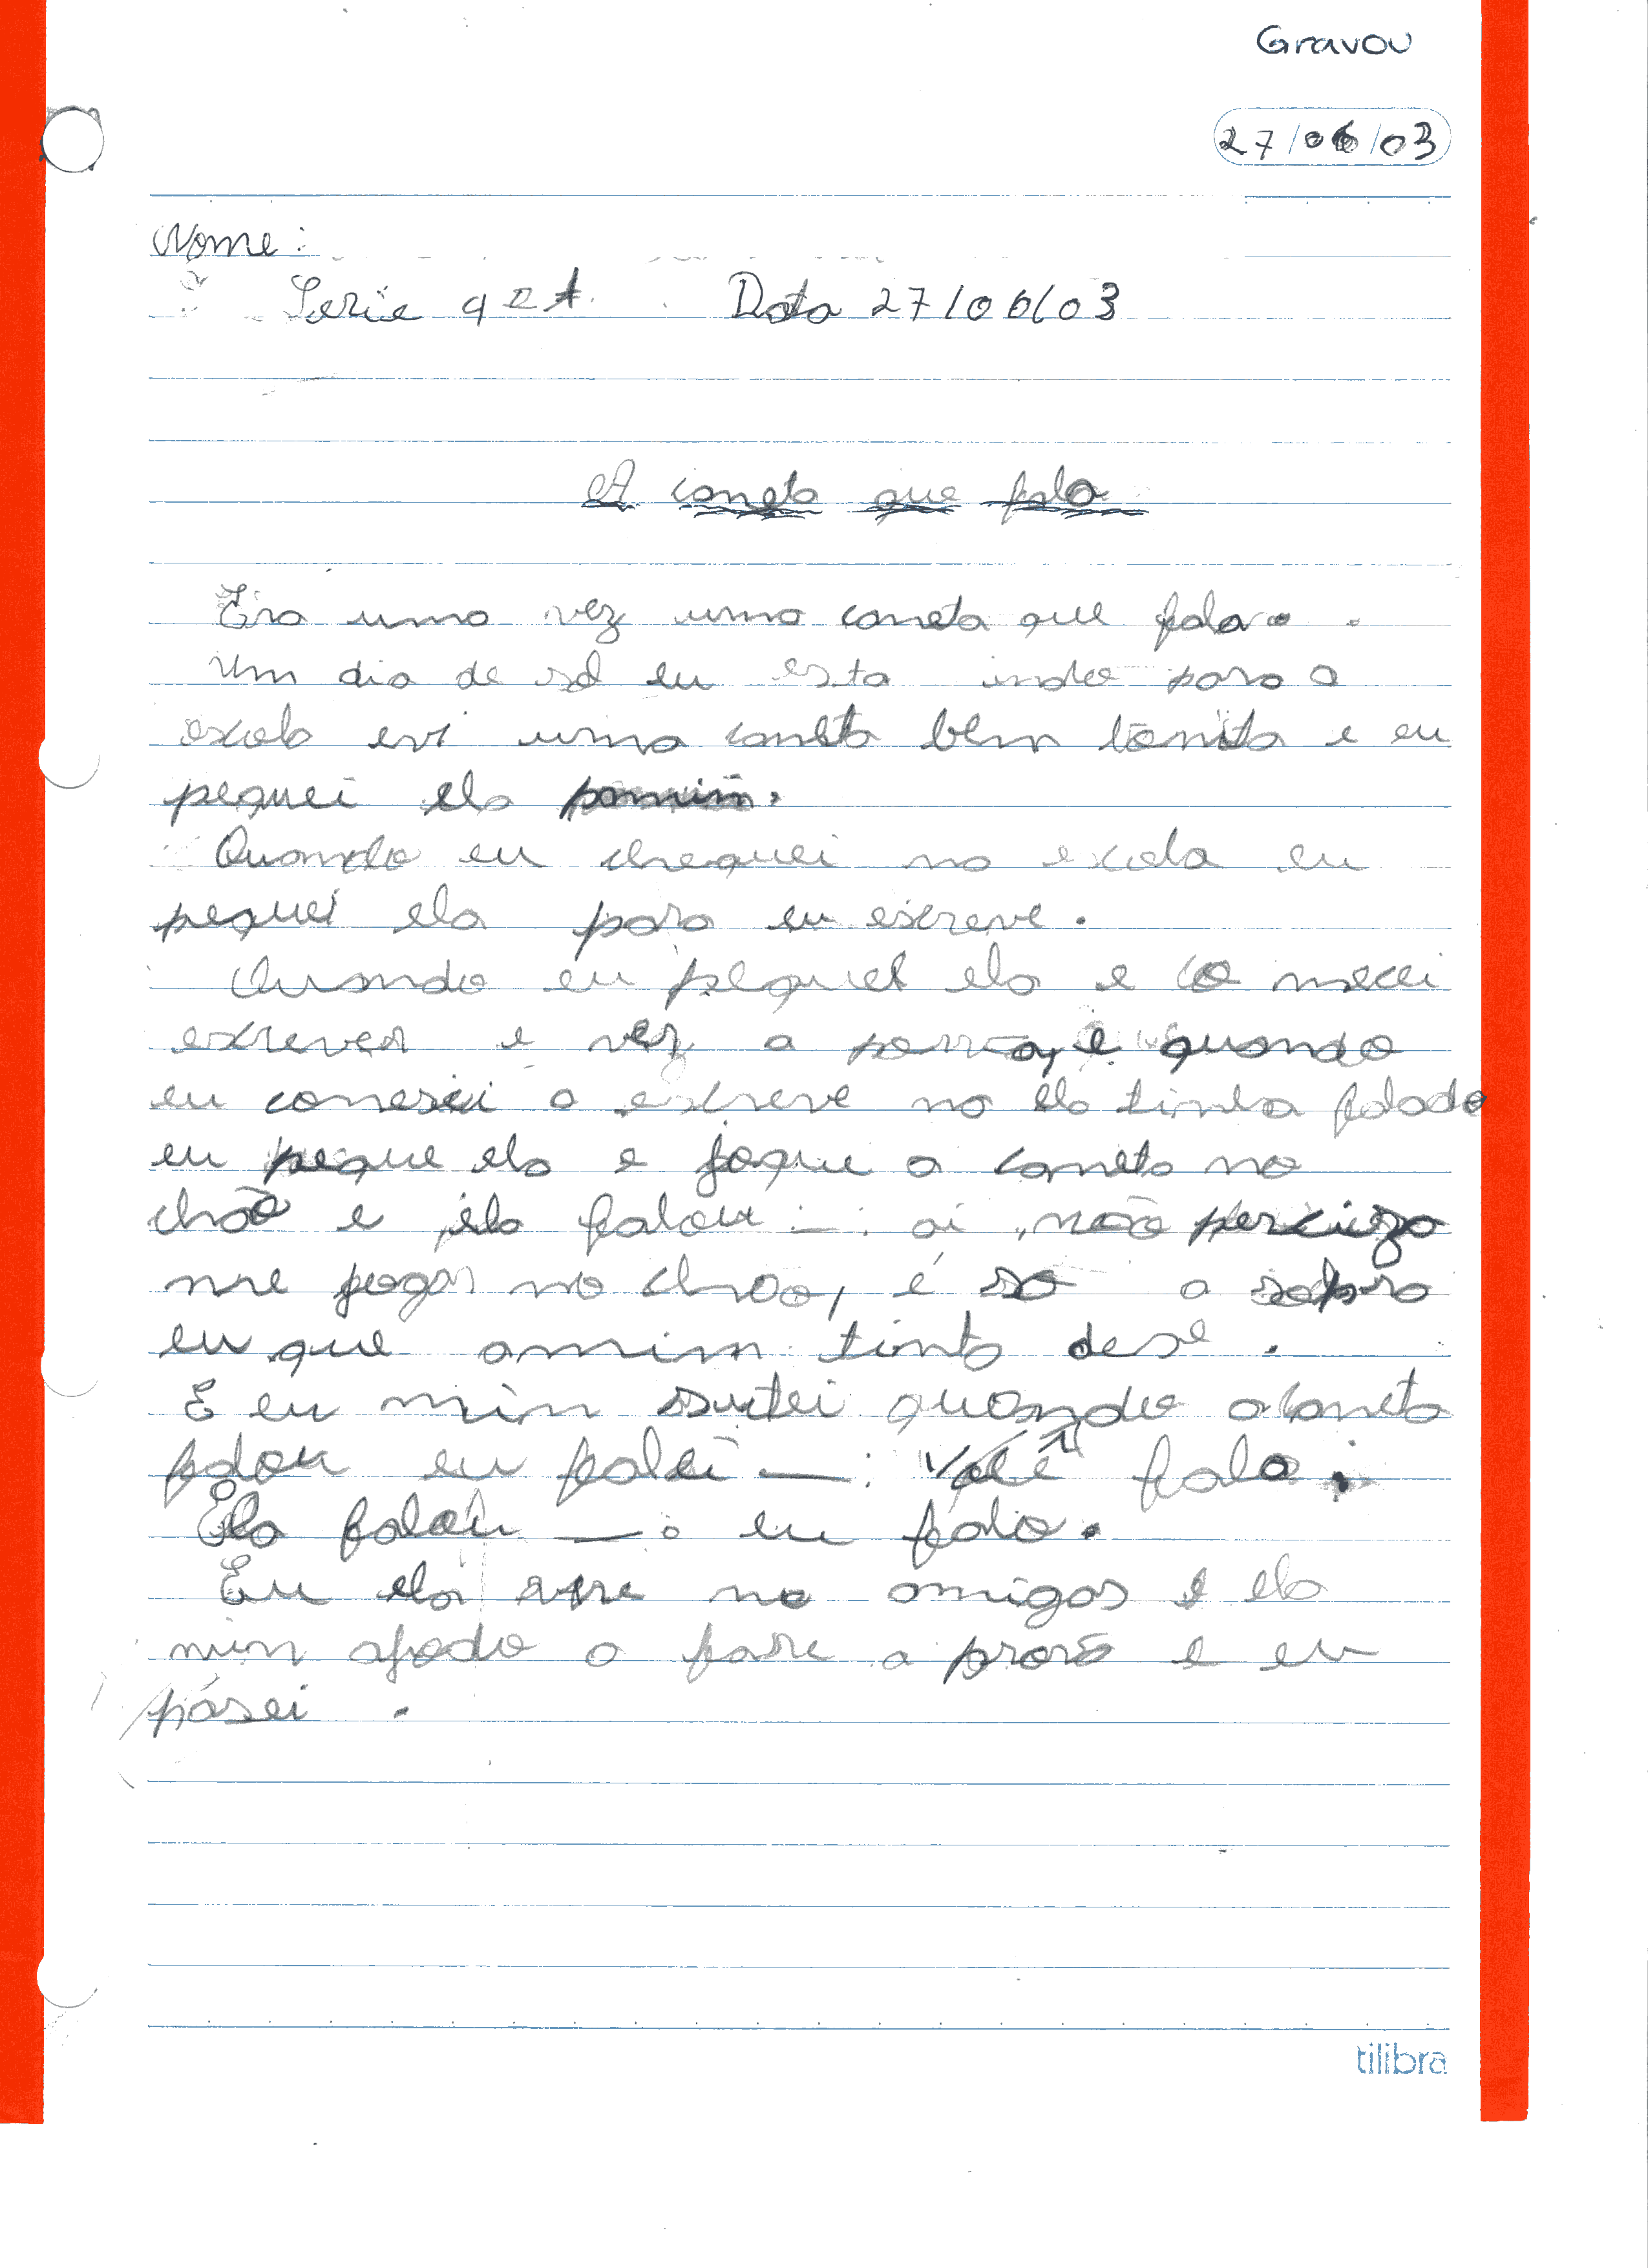 Gravou
27/06/03
Nome:
Serie 4ª A Data 27/06/03
A caneta que fala
Era uma vez uma caneta que falava.
Um dia de sol eu esta indo para a
escola evi uma caneta bem bonita e eu
peguei ela pamim.
Quando eu cheguei na escola eu
peguei ela para eu escreve.
Quando eu peguei ela e co mecei
escrever e vez a
, e quando
eu comesei a escreve na ela tinha falado
eu pegue ela e jogue a caneta no
chão e ela falou —: ai, não percizo
me jogar no chão, é so a
eu que amim tinta dese.
E eu mim sustei quando a caneta
falou eu falei —: Você fala.
Ela falou —: eu falo.
Eu ela no amigos e ela
mim ajuda a fase a prova e eu
pásei.
tilibra